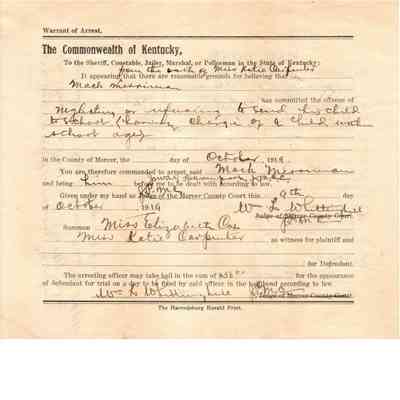 Warrant of Arrest.
The Commonwealth of Kentucky,
To the Sheriff, Constable, Jailer, Marshal, or Policeman in the State of Kentucky:
from the oath of Miss Katie Carpenter
It appearing that there are reasonable grounds for believing that
Mack Merriman
has committed the offense of
Neglecting or refusing to send his child
to School (having charge of a child within
school age)
in the County of Mercer, the day of October 1919
You are therefore commanded to arrest, said Mack Merriman
and bring him before me to be dealt with according to law.
Given under my hand as Judge of the Mercer County Court this 9th day
of October 1919 Wm L Whittinghill
Judge of Mercer County Court.
Summon Miss Elizabeth Cox
Miss Katie Carpenter as witness for plaintiff and
for Defendant.
The arresting officer may take bail in the sum of $50 for the appearance
of defendant for trial on a day to be fixed by said officer in the bail bond according to law.
Wm L Whittinghill Judge of Mercer County Court.
The Harrodsburg Herald Print.